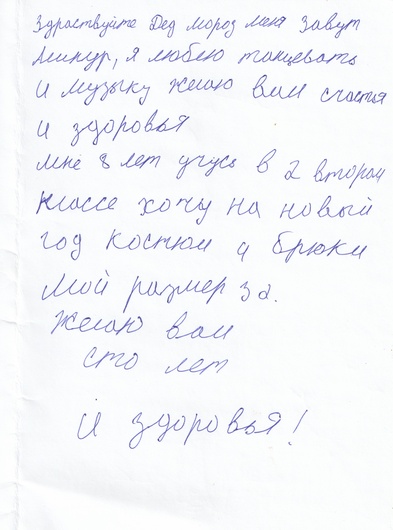 Здраствуйте Дед мороз меня Завут
Алинур, я люблю танцевать
и музыку желаю вам счастья
и здоровья
мне 8 лет учусь в 2 втором
классе хочу на новый
год костюм и брюки
мой размер 32.
желаю вам
сто лет
и здоровья!